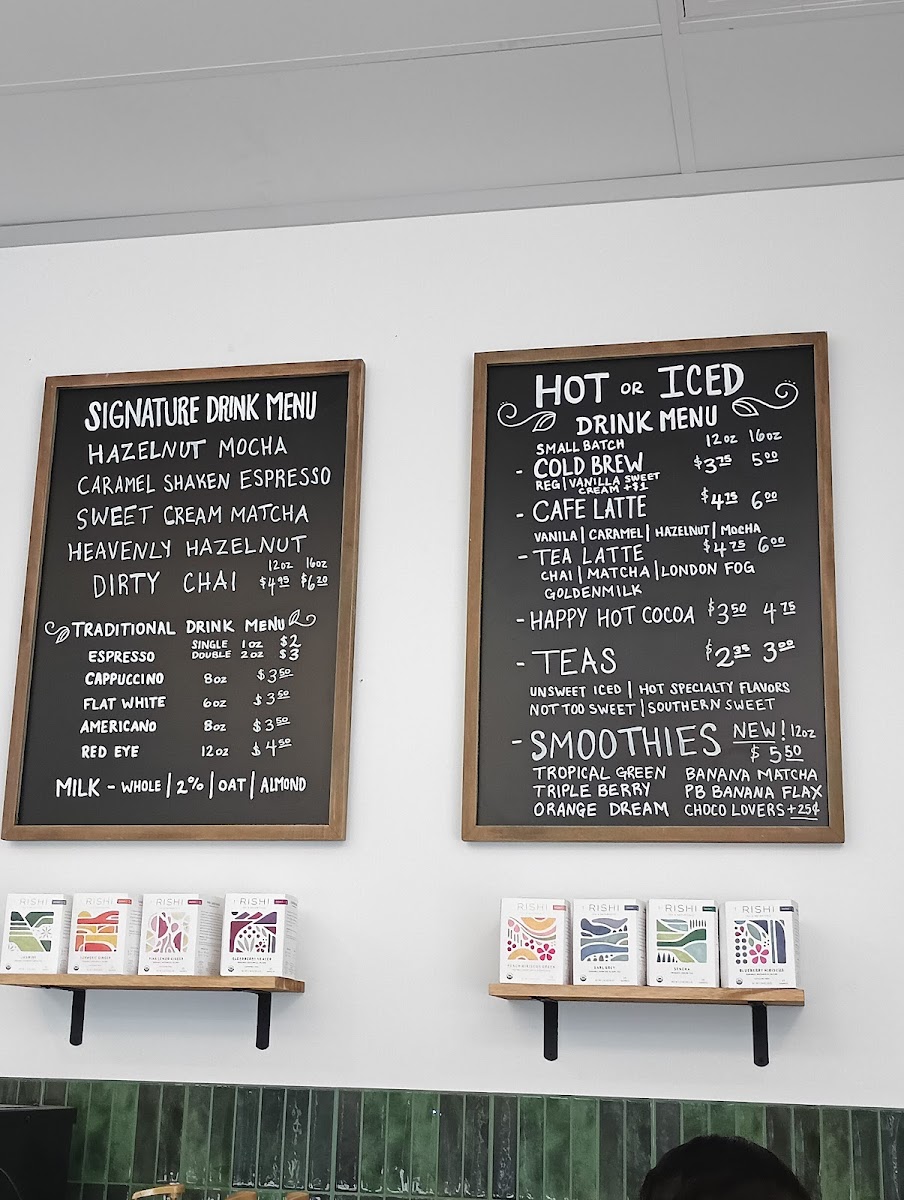 SIGNATURE DRINK MENU
HAZELNUT MOCHA
CARAMEL SHAKEN ESPRESSO
SWEET CREAM MATCHA
HEAVENLY HAZELNUT
12oz 16oz
DIRTY CHAI $4.95 $6.20
TRADITIONAL DRINK MENU
ESPRESSO SINGLE 1oz $2
DOUBLE 2oz $3
CAPPUCCINO 8oz $3.50
FLAT WHITE 6oz $3.50
AMERICANO 8oz $3.50
RED EYE 12oz $4.50
MILK - WHOLE | 2% | OAT | ALMOND
HOT OR ICED
DRINK MENU
SMALL BATCH 12oz 16oz
- COLD BREW $3.75 5.00
REG | VANILLA SWEET
CREAM +$1
- CAFE LATTE $4.75 6.00
VANILA | CARAMEL | HAZELNUT | MOCHA
- TEA LATTE $4.75 6.00
CHAI | MATCHA | LONDON FOG
GOLDENMILK
- HAPPY HOT COCOA $3.50 4.75
- TEAS 3.00
UNSWEET ICED | HOT SPECIALTY FLAVORS
NOT TOO SWEET | SOUTHERN SWEET
- SMOOTHIES NEW! 12oz
$5.50
TROPICAL GREEN BANANA MATCHA
TRIPLE BERRY PB BANANA FLAX
ORANGE DREAM CHOCO LOVERS +25¢
RISHI
RISHI
RISHI
RISHI
JASMINE
TURMERIC GINGER
RISHI
RISHI
RISHI
RISHI
EARL GREY
SENCHA
BLUEBERRY HIBISCUS